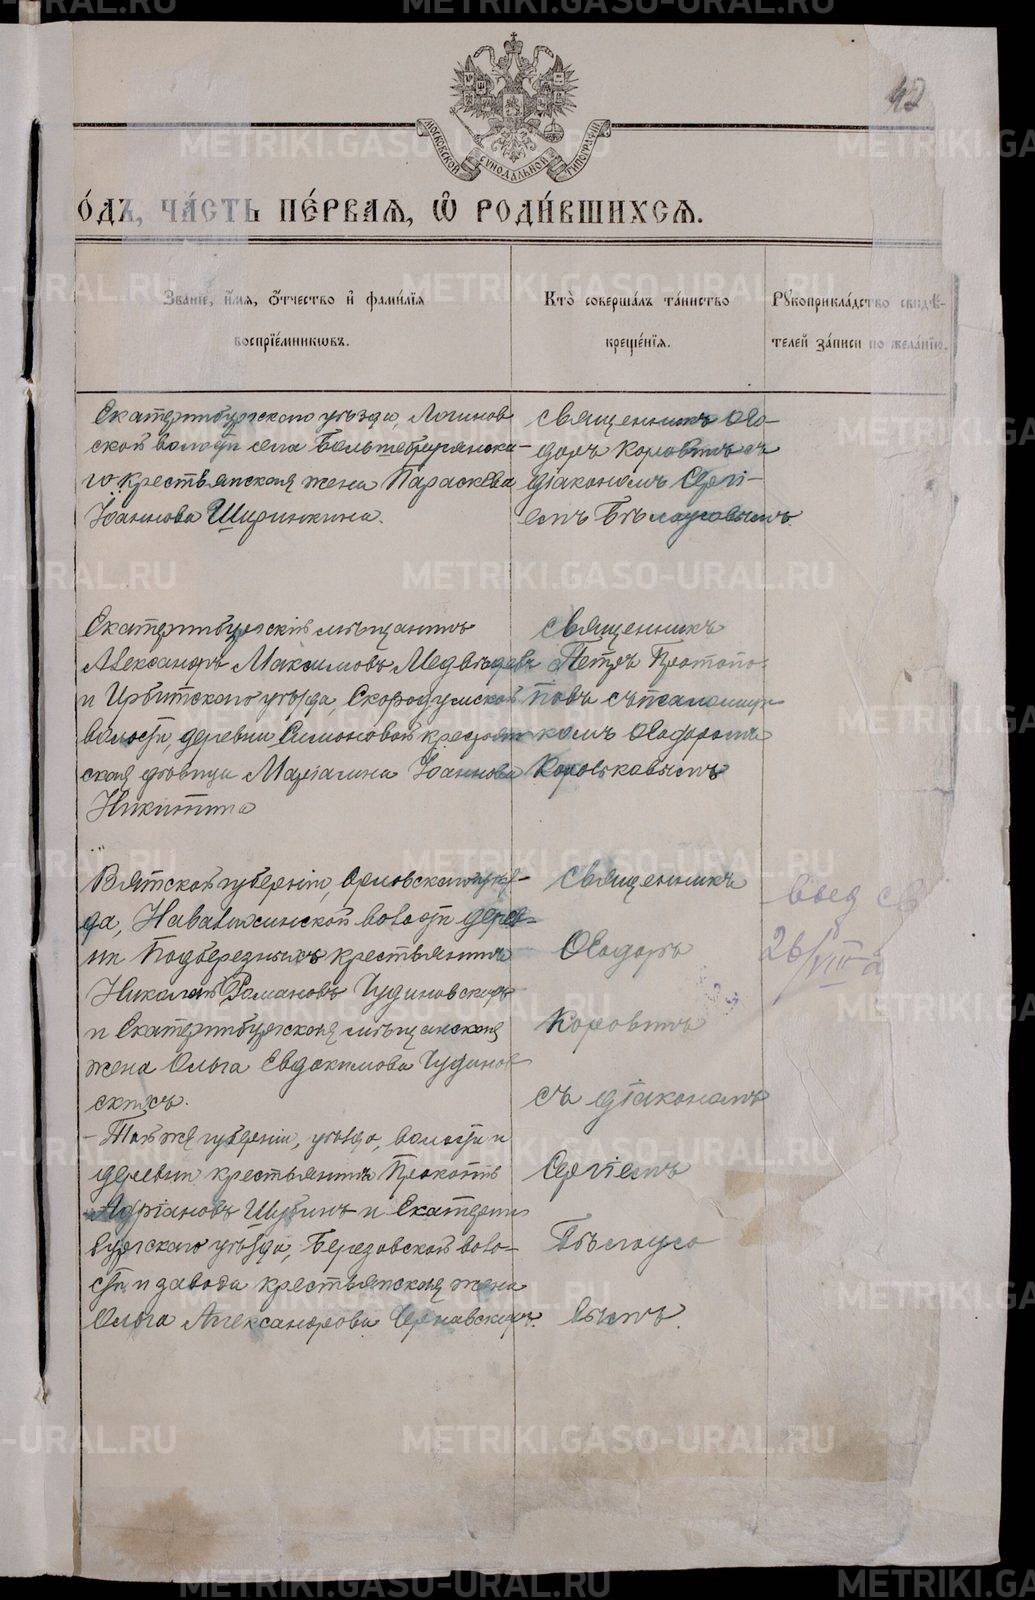 42
МОСКОВСКОЙ СѴНОДАЛЬНОЙ ТИПОГРАФІИ
О́ДЪ, ЧА́СТЬ ПЕ́РВАЯ, Ѿ РОДИ́ВШИХСЯ.
Зва́ніе, и҆́мя, ѻ҆́тчество и҆ фами́лїя
воспрїе́мникѡвъ.
Кто̀ соверша́лъ та́инство
креще́нїѧ.
Рꙋкоприкла́дство свидѣ́-
телей за́писи по жела́нїю.
Екатеринбургскаго уѣзда, Логинов
ской волости села Больше-Брусянска-
го крестьянская жена Параскева
Іоаннова Ширинкина.
Священникъ Ѳео-
доръ Коровинъ съ
діакономъ Сергі-
емъ Бѣлоусовымъ
Екатеринбургскій мѣщанинъ
Александръ Максимовъ Медвѣдевъ
и Ирбитскаго уѣзда, Скородумской
волости деревни Симоновой крестьян
ская дѣвица Маріамна Іоаннова
Никитина
Священникъ
Петръ Протопо-
повъ съ псаломщи-
комъ Ѳеодоромъ
Коровьковымъ
Вятской губерніи, Орловскаго уѣз-
да, волости дерев-
ни Подберезныхъ крестьянинъ
Николай Романовъ Чудиновскихъ
и Екатеринбургская мѣщанская
жена Ольга Евдокимова Чудинов
скихъ.
- Той же губерніи, уѣзда, волости и
деревни крестьянинъ Прокопій
Адріановъ Шубинъ и Екатерин
бургскаго уѣзда, Березовской воло-
сти и завода крестьянская жена
Ольга Александрова Чернавскихъ.
Священникъ
Ѳеодоръ
Коровинъ
съ діакономъ
Сергіемъ
Бѣлоусо
вымъ.
26/VIII
METRIKI.GASO-URAL.RU